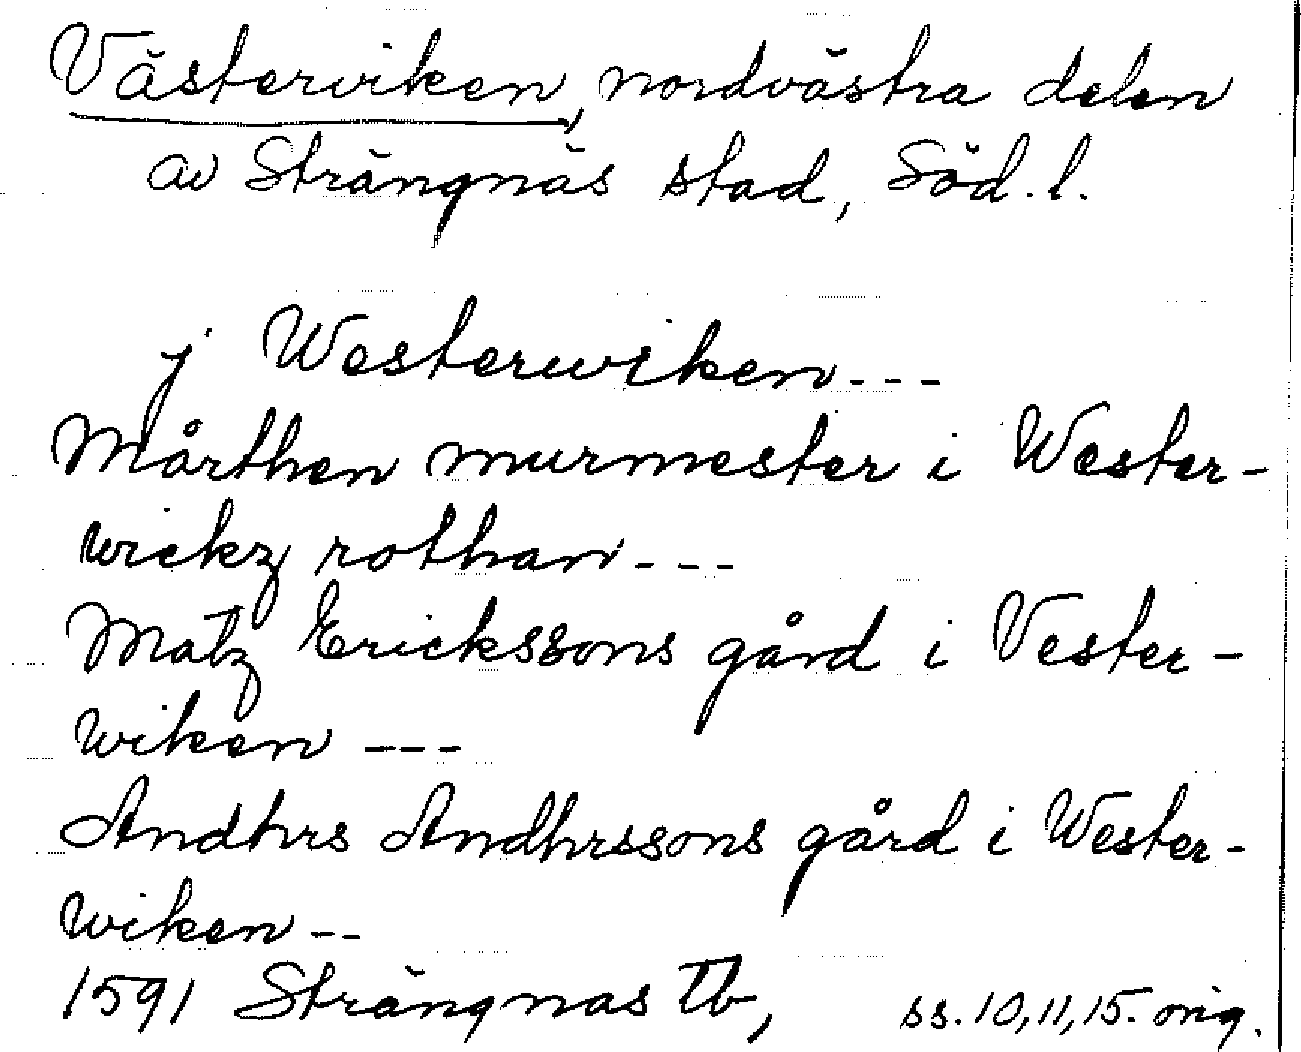 Västerviken, nordvästra delen
av Strängnäs stad, Söd. l.
j Westerwiken---
Mårthen murmester i Wester-
wickz rothan---
Matz Erickssons gård i Vester-
wiken ---
Andhrs Andhrssons gård i Wester-
wiken--
1591 Strängnas tb, ss. 10, 11, 15. orig.